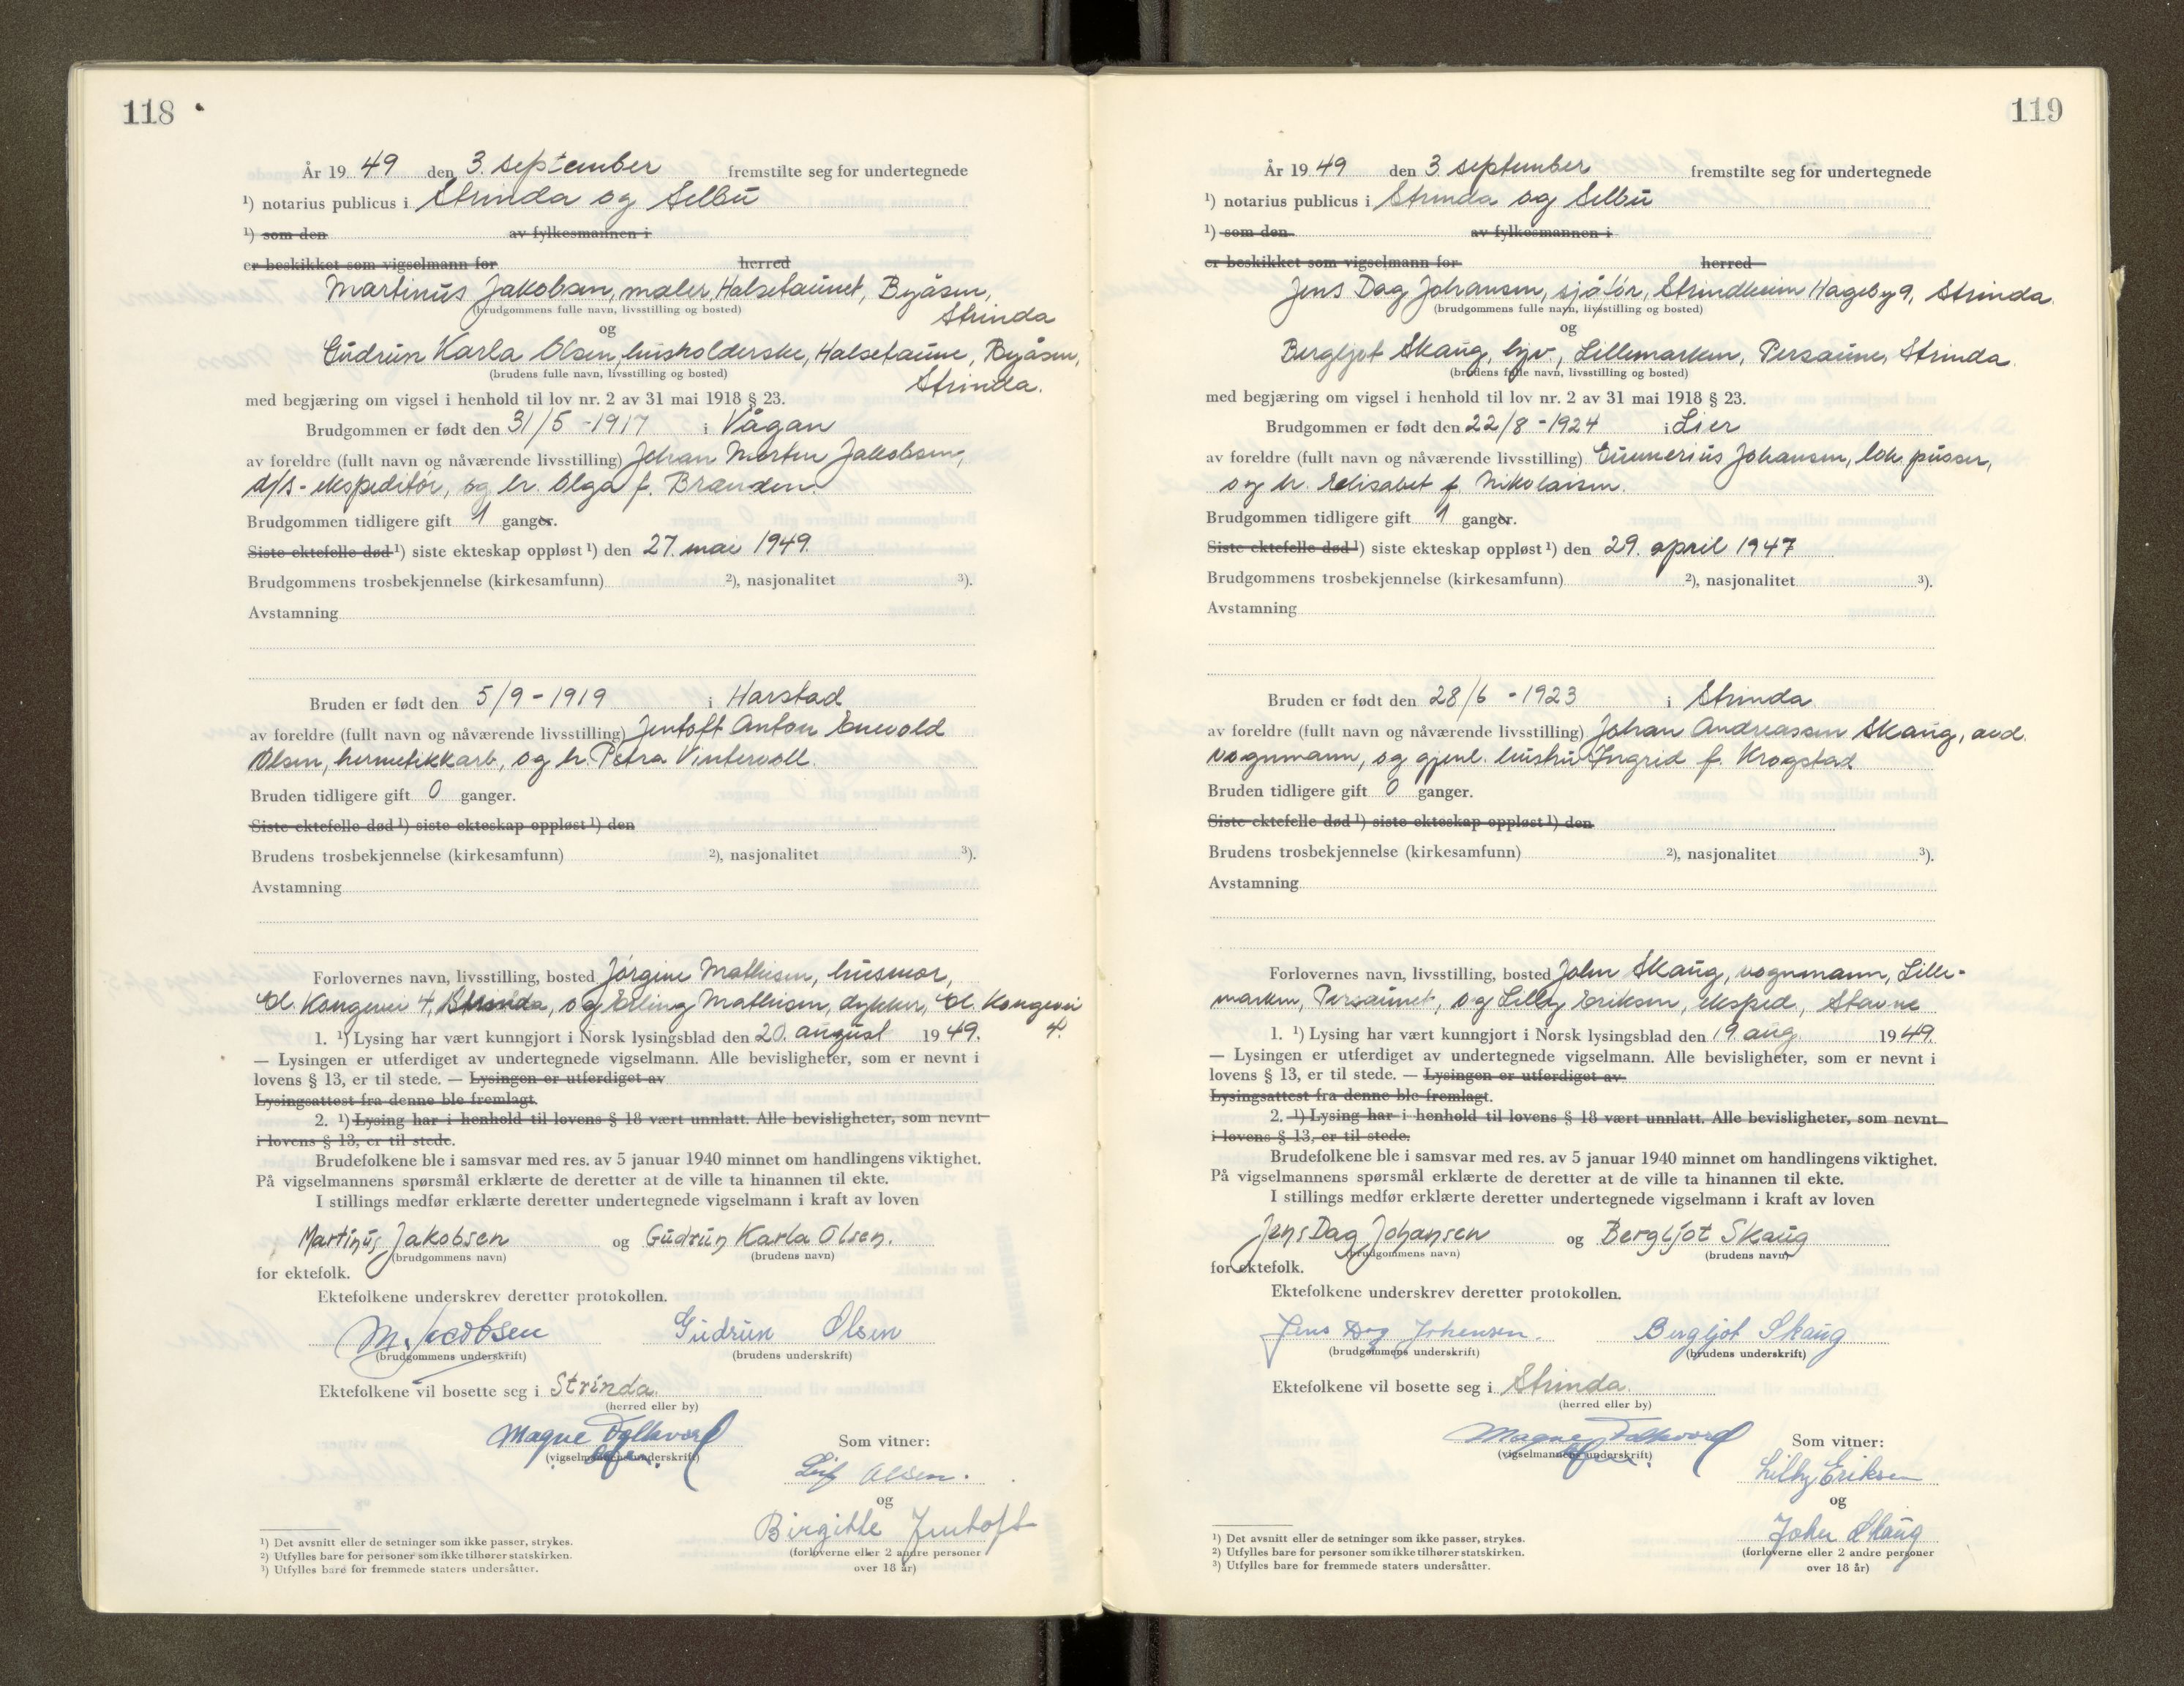 118
År 19 49 den 3. september fremstilte seg for undertegnede
¹) notarius publicus i Strinda og Selbu
¹) som den av fylkesmannen i
er beskikket som vigselmann for herred
Martinus Jakobsen, maler, Halsetaunet, Byåsen,
Strinda
(brudgommens fulle navn, livsstilling og bosted)
og
Gudrun Karla Olsen, husholderske, Halsetaune, Byåsen,
Strinda.
(brudens fulle navn, livsstilling og bosted)
med begjæring om vigsel i henhold til lov nr. 2 av 31 mai 1918 § 23.
Brudgommen er født den 31/5 - 1917 i Vågan
av foreldre (fullt navn og nåværende livsstilling) Johan Morten Jakobsen,
d/s-ekspeditør, og h. Olga f. Brandsen.
Brudgommen tidligere gift 1 ganger.
Siste ektefelle død ¹) siste ekteskap oppløst ¹) den 27. mai 1949.
Brudgommens trosbekjennelse (kirkesamfunn) ²), nasjonalitet ³).
Avstamning
Bruden er født den 5/9 - 1919 i Harstad
av foreldre (fullt navn og nåværende livsstilling) Jentoft Anton Enevold
Olsen, hermetikkarb, og h. Petra Vintervoll.
Bruden tidligere gift 0 ganger.
Siste ektefelle død ¹) siste ekteskap oppløst ¹) den
Brudens trosbekjennelse (kirkesamfunn) ²), nasjonalitet ³).
Avstamning
Forlovernes navn, livsstilling, bosted Jørgine Mathisen, husmor,
Gl. Kongevei 4, Strinda, og Erling Mathisen, dykker, Gl. Kongevei
4.
1. ¹) Lysing har vært kunngjort i Norsk lysingsblad den 20. august 1949.
— Lysingen er utferdiget av undertegnede vigselmann. Alle bevisligheter, som er nevnt i
lovens § 13, er til stede. — Lysingen er utferdiget av
Lysingsattest fra denne ble fremlagt.
2. ¹) Lysing har i henhold til lovens § 18 vært unnlatt. Alle bevisligheter, som nevnt
i lovens § 13, er til stede.
Brudefolkene ble i samsvar med res. av 5 januar 1940 minnet om handlingens viktighet.
På vigselmannens spørsmål erklærte de deretter at de ville ta hinannen til ekte.
I stillings medfør erklærte deretter undertegnede vigselmann i kraft av loven
Martinus Jakobsen og Gudrun Karla Olsen.
(brudgommens navn) (brudens navn)
for ektefolk.
Ektefolkene underskrev deretter protokollen.
M. Jacobsen Gudrun Olsen
(brudgommens underskrift) (brudens underskrift)
Ektefolkene vil bosette seg i Strinda.
(herred eller by)
Magne Folkvord
(vigselmannens underskrift)
Som vitner:
Leif Olsen.
og
Birgitte Jentoft
(forloverne eller 2 andre personer
over 18 år)
¹) Det avsnitt eller de setninger som ikke passer, strykes.
²) Utfylles bare for personer som ikke tilhører statskirken.
³) Utfylles bare for fremmede staters undersåtter.
119
År 19 49 den 3 september fremstilte seg for undertegnede
¹) notarius publicus i Strinda og Selbu
¹) som den av fylkesmannen i
er beskikket som vigselmann for herred
Jens Dag Johansen, sjåfør, Strindheim Hageby 9, Strinda.
(brudgommens fulle navn, livsstilling og bosted)
og
Bergljot Skaug, hjv, Lillemarken, Persaune, Strinda
(brudens fulle navn, livsstilling og bosted)
med begjæring om vigsel i henhold til lov nr. 2 av 31 mai 1918 § 23.
Brudgommen er født den 22/8 - 1924 i Lier
av foreldre (fullt navn og nåværende livsstilling) Gunnerius Johansen, lok. pusser,
og h. Elisabet f. Nikolaisen.
Brudgommen tidligere gift 1 ganger.
Siste ektefelle død ¹) siste ekteskap oppløst ¹) den 29. april 1947
Brudgommens trosbekjennelse (kirkesamfunn) ²), nasjonalitet ³).
Avstamning
Bruden er født den 28/6 - 1923 i Strinda
av foreldre (fullt navn og nåværende livsstilling) Johan Andreassen Skaug, avd.
vognmann, og gjenl. hustru Ingrid f. Krogstad
Bruden tidligere gift 0 ganger.
Siste ektefelle død ¹) siste ekteskap oppløst ¹) den
Brudens trosbekjennelse (kirkesamfunn) ²), nasjonalitet ³).
Avstamning
Forlovernes navn, livsstilling, bosted John Skaug, vognmann, Lille-
marken, Persaunet, og Lilly Eriksen, eksped, Stavne
1. ¹) Lysing har vært kunngjort i Norsk lysingsblad den 19 aug 1949.
— Lysingen er utferdiget av undertegnede vigselmann. Alle bevisligheter, som er nevnt i
lovens § 13, er til stede. — Lysingen er utferdiget av
Lysingsattest fra denne ble fremlagt.
2. ¹) Lysing har i henhold til lovens § 18 vært unnlatt. Alle bevisligheter, som nevnt
i lovens § 13, er til stede.
Brudefolkene ble i samsvar med res. av 5 januar 1940 minnet om handlingens viktighet.
På vigselmannens spørsmål erklærte de deretter at de ville ta hinannen til ekte.
I stillings medfør erklærte deretter undertegnede vigselmann i kraft av loven
Jens Dag Johansen og Bergljot Skaug
(brudgommens navn) (brudens navn)
for ektefolk.
Ektefolkene underskrev deretter protokollen.
Jens Dag Johansen. Bergljot Skaug
(brudgommens underskrift) (brudens underskrift)
Ektefolkene vil bosette seg i Strinda.
(herred eller by)
Magne Folkvord
(vigselmannens underskrift)
Som vitner:
Lilly Eriksen
og
John Skaug
(forloverne eller 2 andre personer
over 18 år)
¹) Det avsnitt eller de setninger som ikke passer, strykes.
²) Utfylles bare for personer som ikke tilhører statskirken.
³) Utfylles bare for fremmede staters undersåtter.